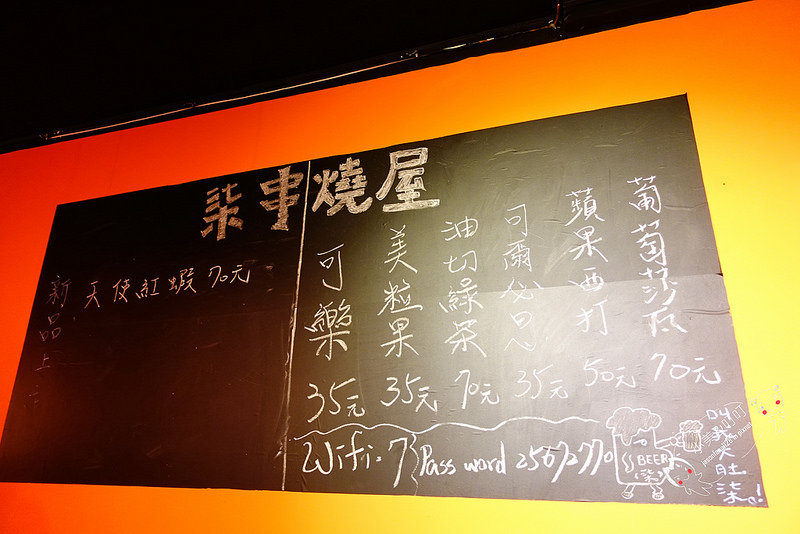 柒串燒屋
新品上
天使紅蝦 70元
葡萄莎瓦 70元
蘋果西打 50元
可爾必思 35元
油切綠茶 70元
美粒果 35元
可樂 35元
Wifi:7 Pass word 2567270
BEER
柒
大肚
柒!